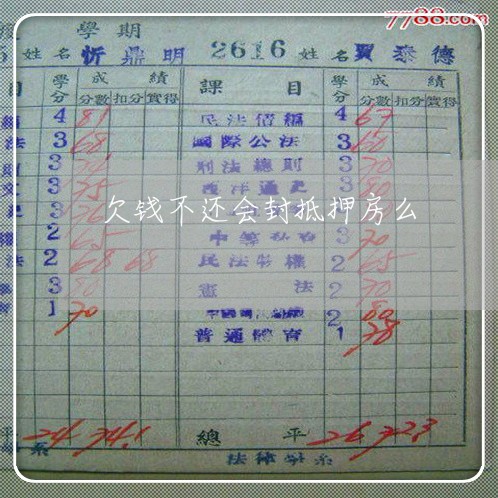 7788.com
學期
姓名 忻鼎明 2616 姓名 賈泰德
目 學分 成績 課目 學分 成績
分數 扣分 實得 分數 扣分 實得
4 81 民法債編 4 67
法 3 68 國際公法 3 60
3 刑法總則 3 70
3 75 西洋通史 3
3
2 65 3 70
法 2 68 68 民法物權 2 65
3 80 憲法 2 70
1 70 2 80
普通體育 1 78
欠钱不还会封抵押房么
平 24 74.1 總平 26 72.3
系 法律學系